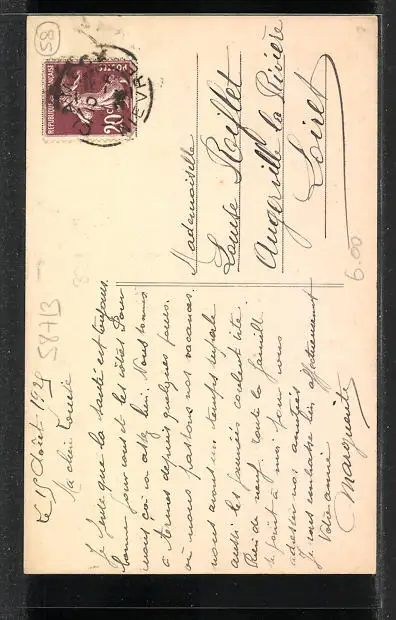 58
REPUBLIQUE FRANÇAISE
POSTES
20c
Mademoiselle
Louise Rifflet
Augerville la Rivière
Loiret
6.00
587B
Le 15 Août 1929
Ma chère Louise
Je pense que la santé est toujours
bonne pour vous et les vôtres Pour
nous ça va assez bien. Nous sommes
à Ternes depuis quelques jours.
où nous passons nos vacances.
nous avons un temps superbe
aussi les journées coulent vite.
Rien de neuf. toute la famille
se joint à moi pour vous
adresser nos amitiés
Je vous embrasse bien affectueusement
Votre amie
Marguerite